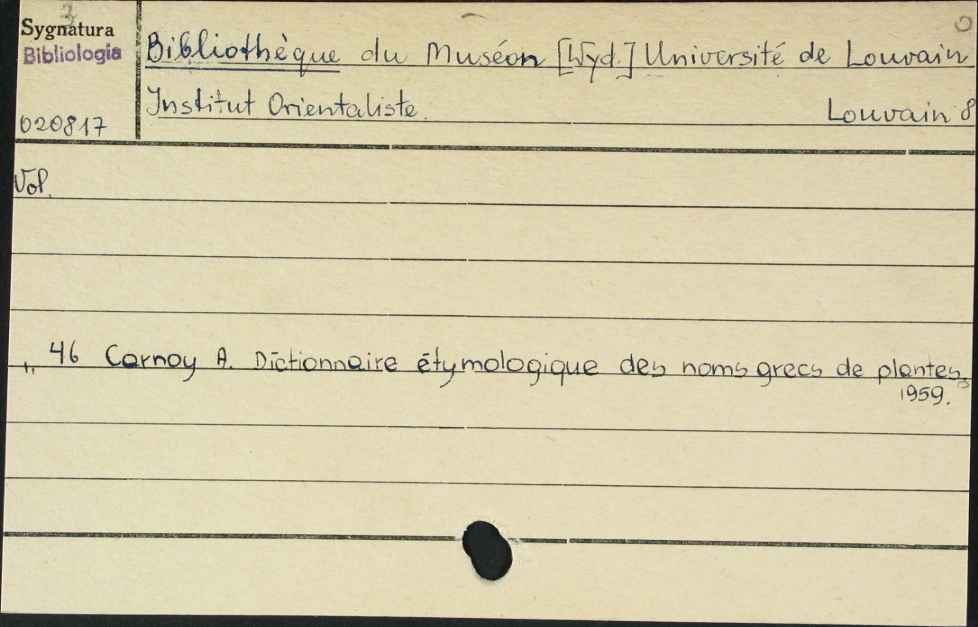 Sygnatura
Bibliologia
020817
Bibliothèque du Muséon [Wyd.] Université de Louvain
Institut Orientaliste. Louvain 8
Vol.
" 46 Carnoy A. Dictionnaire étymologique des noms grecs de plantes.
1959.